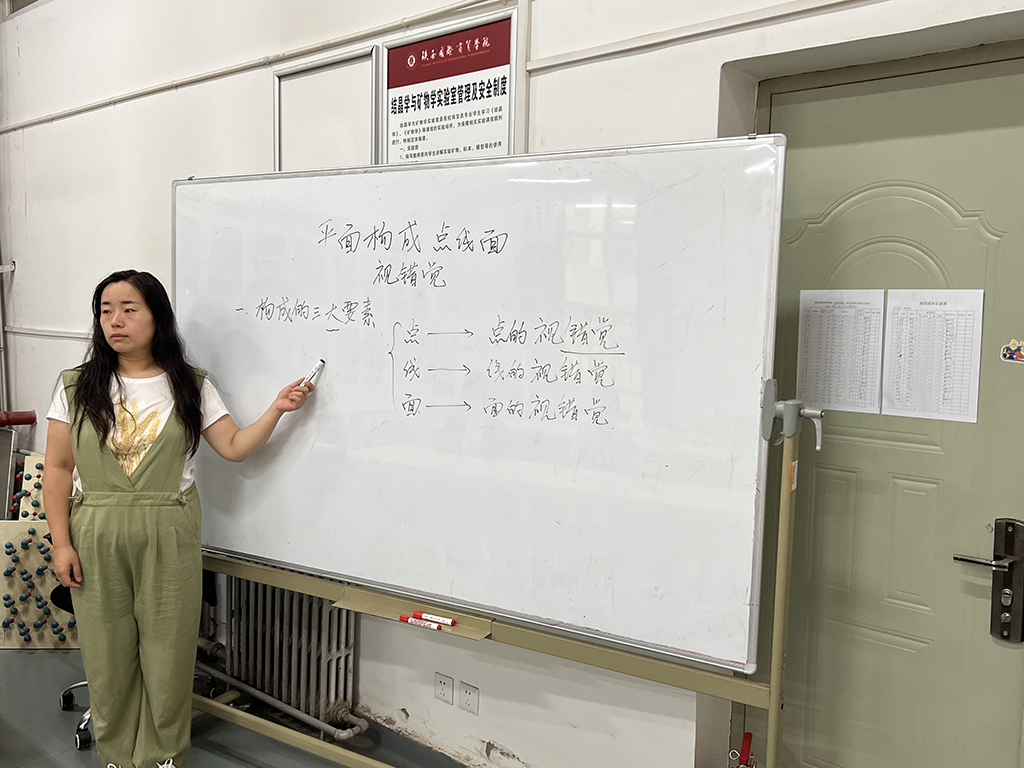 陕西国际商贸学院
结晶学与矿物学实验室管理及安全制度
一、实验前
平面构成 点线面
视错觉
一. 构成的三大要素
点 → 点的视错觉
线 → 线的视错觉
面 → 面的视错觉